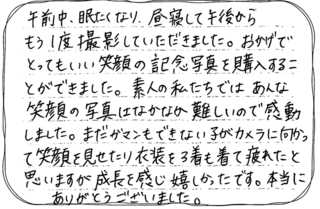 午前中、眠たくなり、昼寝して午後から
もう1度撮影していただきました。おかげで
とってもいい笑顔の記念写真を購入するこ
とができました。素人の私たちでは あんな
笑顔の写真はなかなか難しいので感動
しました。まだガマンもできない子がカメラに向かっ
て笑顔を見せたり衣装を3着も着て疲れたと
思いますが成長を感じ嬉しかったです。本当に
ありがとうございました。